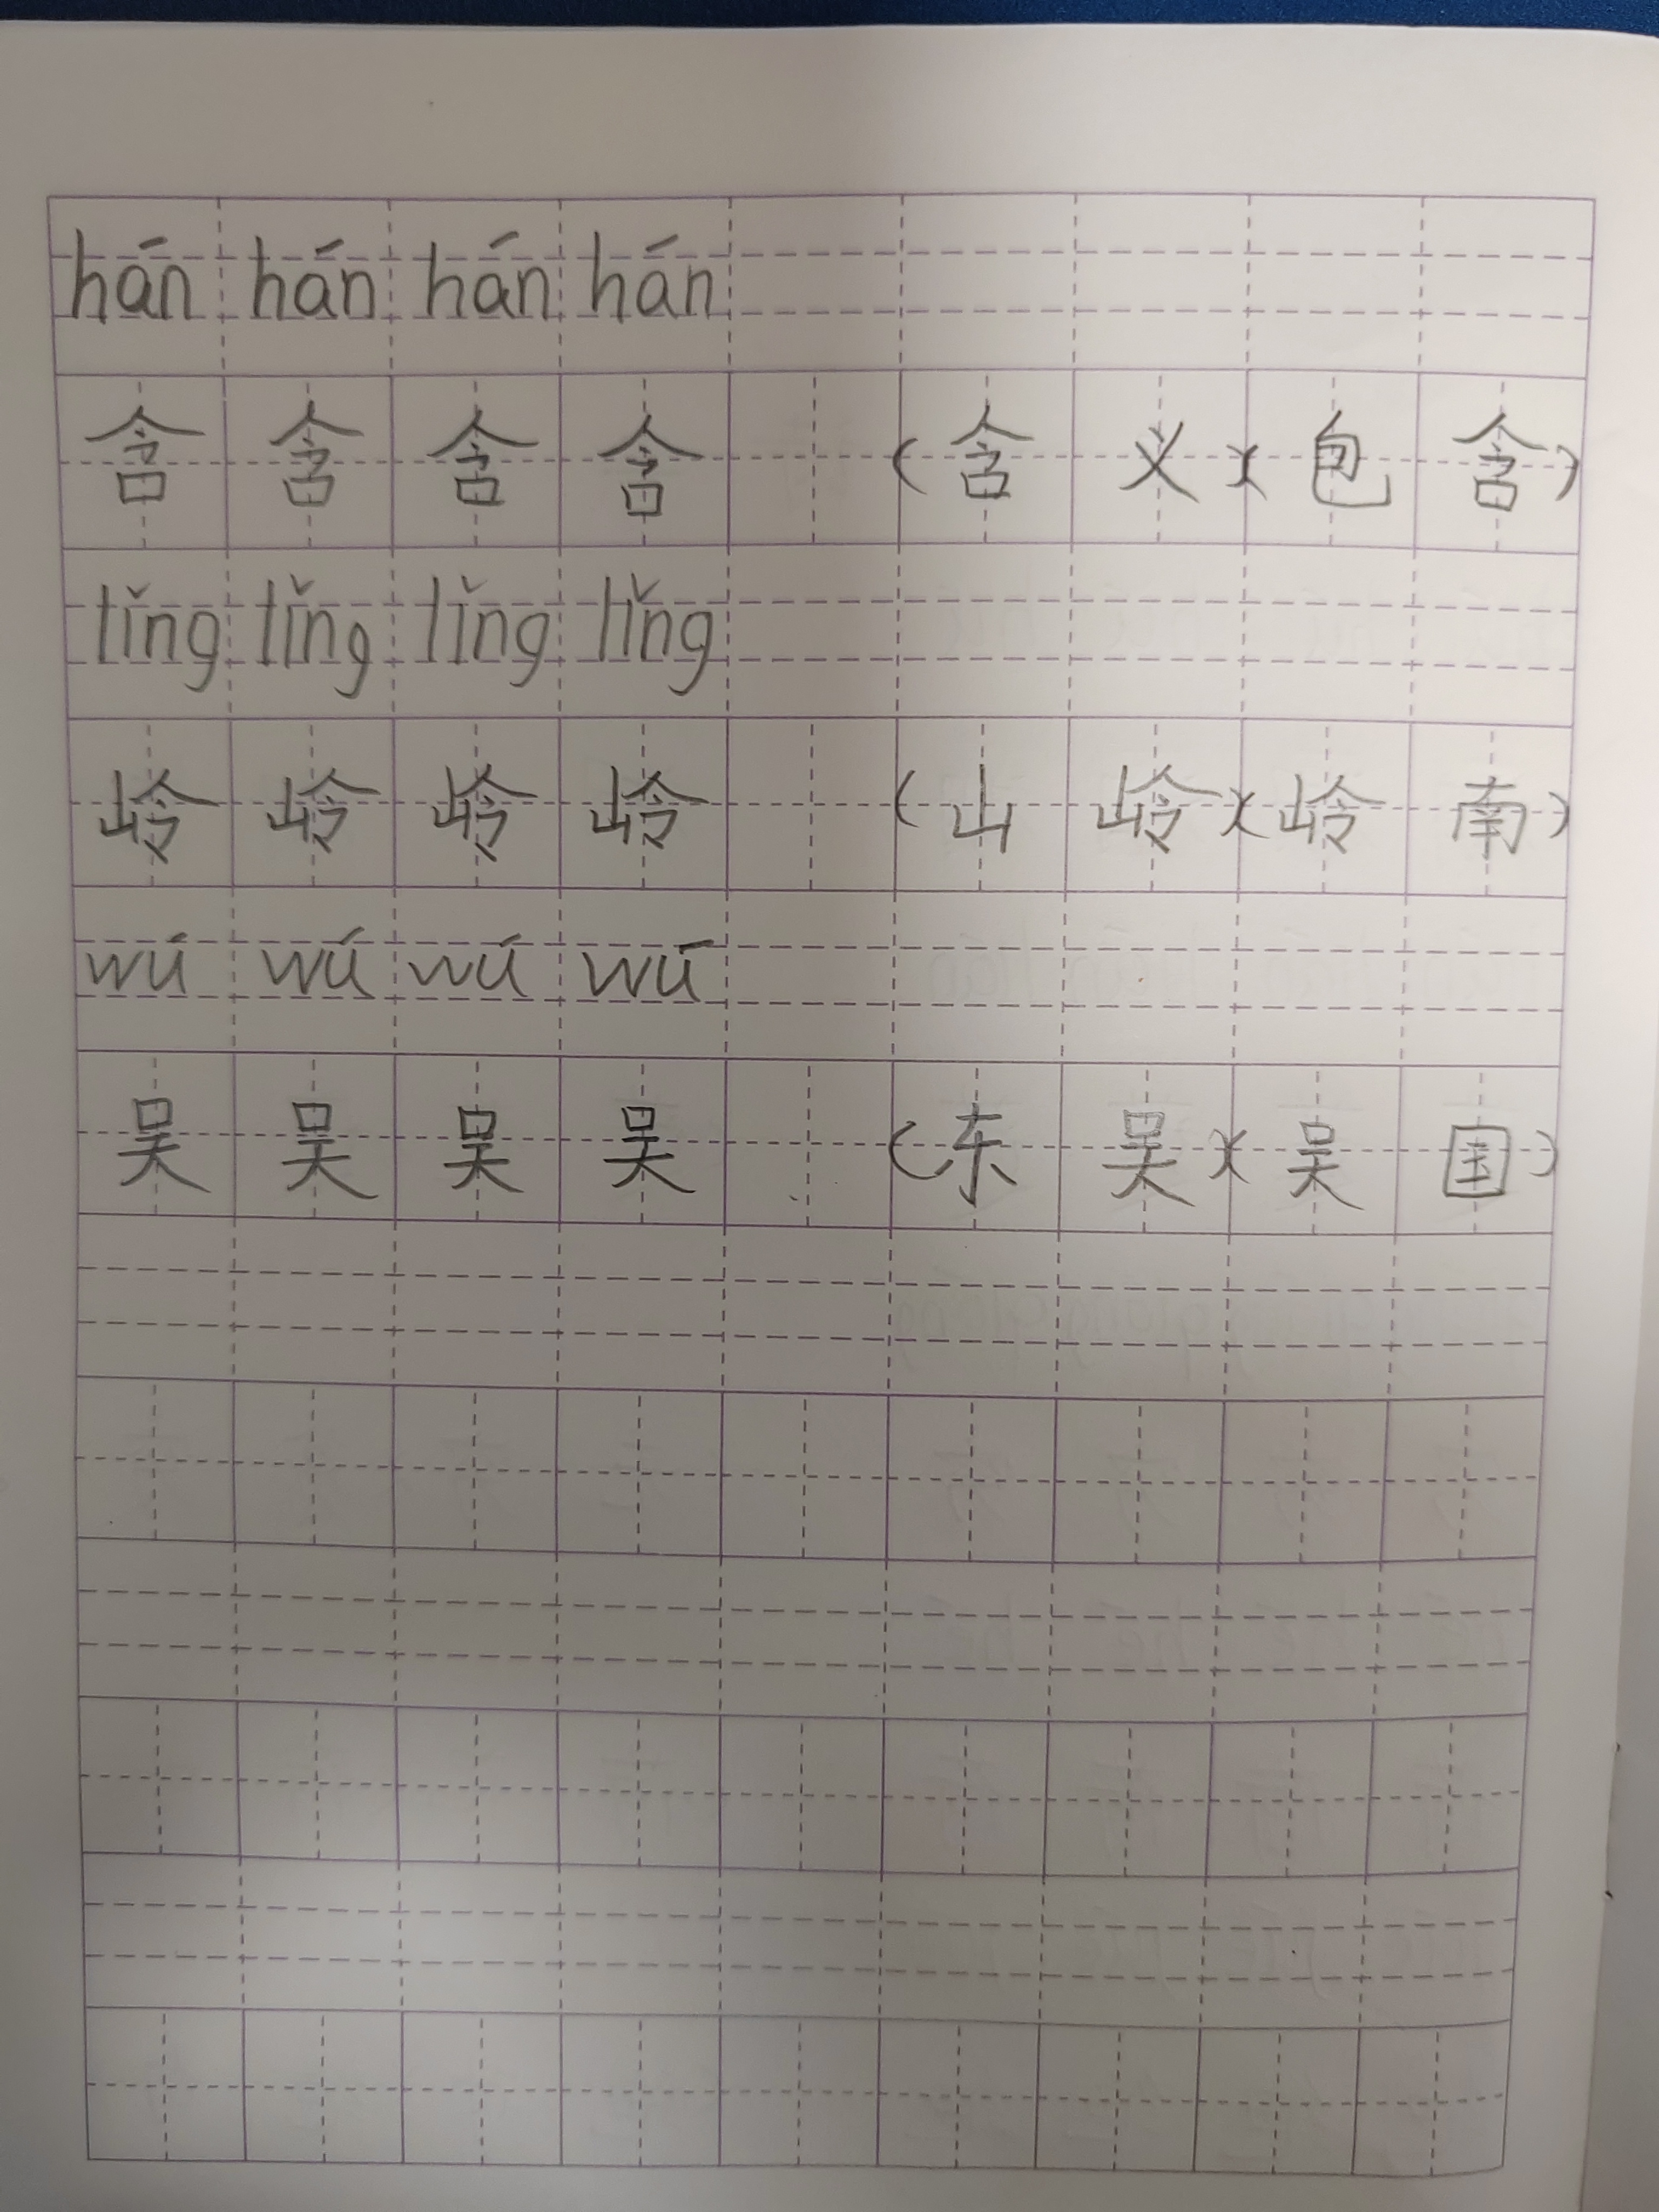 hán hán hán hán
含 含 含 含 (含 义)(包 含)
lǐng lǐng lǐng lǐng
岭 岭 岭 岭 (山 岭)(岭 南)
wú wú wú wú
吴 吴 吴 吴 (东 吴)(吴 国)